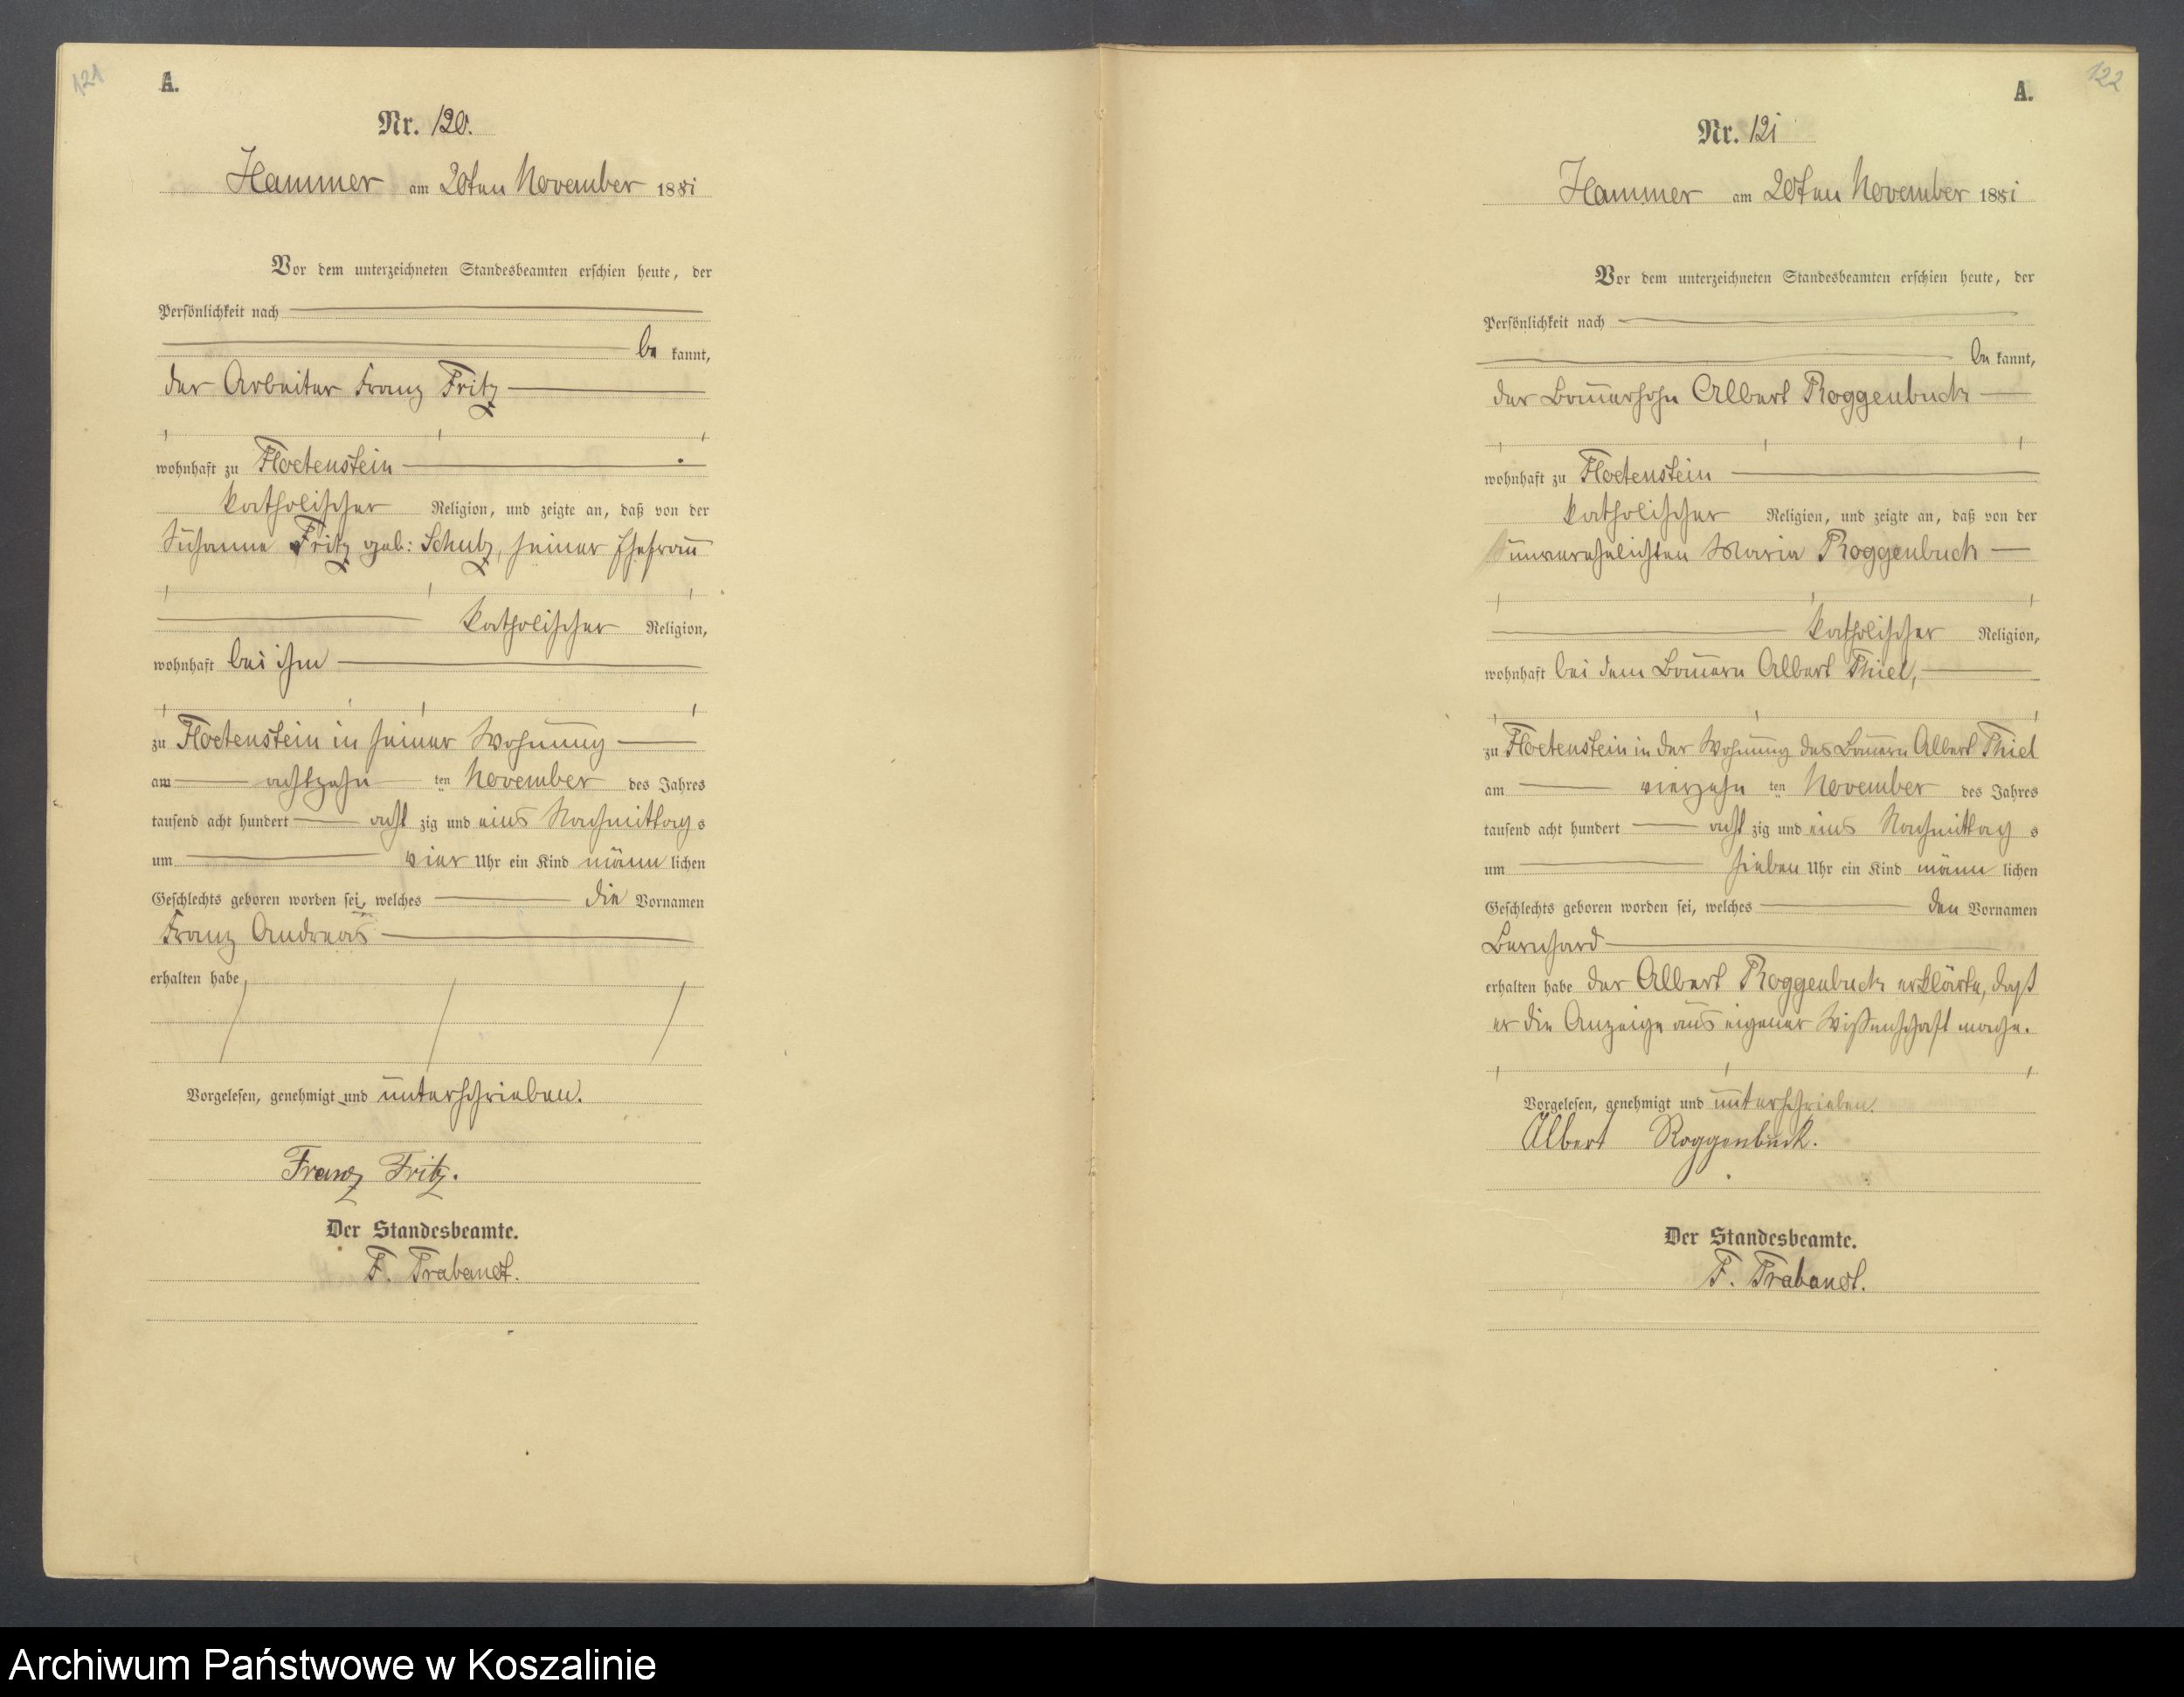 121
A.
Nr. 120.
Hammer am 20ten November 1881
Vor dem unterzeichneten Standesbeamten erschien heute, der
Persönlichkeit nach
be kannt,
der Arbeiter Franz Fritz
wohnhaft zu Floetenstein
katholischer Religion, und zeigte an, daß von der
Susanne Fritz geb: Schulz, seiner Ehefrau
katholischer Religion,
wohnhaft bei ihm
zu Floetenstein in seiner Wohnung
am achtzehn ten November des Jahres
tausend acht hundert acht zig und eins Nachmittag s
um vier Uhr ein Kind männ lichen
Geschlechts geboren worden sei, welches die Vornamen
Franz Andreas
erhalten habe
Vorgelesen, genehmigt und unterschrieben.
Franz Fritz.
Der Standesbeamte.
F. Trabandt.
122
A.
Nr. 121
Hammer am 20ten November 1881
Vor dem unterzeichneten Standesbeamten erschien heute, der
Persönlichkeit nach
be kannt,
der Bauersohn Albert Roggenbuck
wohnhaft zu Floetenstein
katholischer Religion, und zeigte an, daß von der
unverehelichten Maria Roggenbuck
katholischer Religion,
wohnhaft bei dem Bauern Albert Thiel,
zu Floetenstein in der Wohnung des Bauern Albert Thiel
am vierzehn ten November des Jahres
tausend acht hundert acht zig und eins Nachmittag s
um sieben Uhr ein Kind männ lichen
Geschlechts geboren worden sei, welches den Vornamen
Bernhard
erhalten habe der Albert Roggenbuck erklärte, daß
er die Anzeige aus eigener Wissenschaft mache.
Vorgelesen, genehmigt und unterschrieben.
Albert Roggenbuck.
Der Standesbeamte.
F. Trabandt.
Archiwum Państwowe w Koszalinie